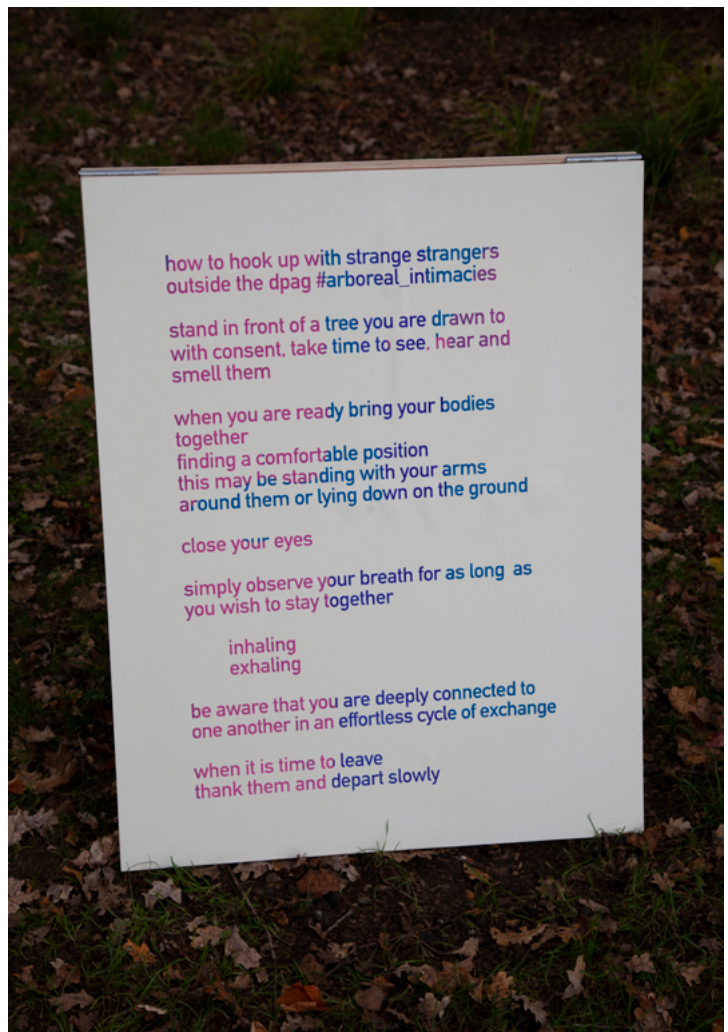 how to hook up with strange strangers
outside the dpag #arboreal_intimacies
stand in front of a tree you are drawn to
with consent, take time to see, hear and
smell them
when you are ready bring your bodies
together
finding a comfortable position
this may be standing with your arms
around them or lying down on the ground
close your eyes
simply observe your breath for as long as
you wish to stay together
inhaling
exhaling
be aware that you are deeply connected to
one another in an effortless cycle of exchange
when it is time to leave
thank them and depart slowly